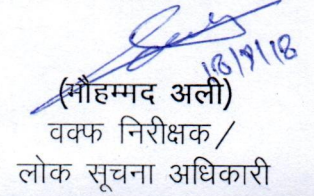 18/9/18
(मौहम्मद अली)
वक्फ निरीक्षक /
लोक सूचना अधिकारी